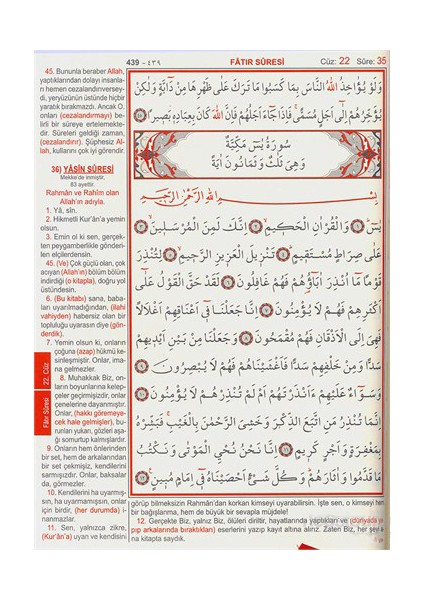 439 - ٤٣٩ FÂTIR SÛRESİ Cüz: 22 Sûre: 35
45. Bununla beraber Allah,
yaptıklarından dolayı insanla-
rı hemen cezalandırıverse-
di, yeryüzünün üstünde hiçbir
yaratık bırakmazdı. Ancak O,
onları (cezalandırmayı) belli
bir süreye ertelemekte-
dir. Süreleri geldiği zaman,
(cezalandırır). Şüphesiz Al-
lah, kullarını çok iyi görendir.
36) YÂSÎN SÛRESİ
Mekke'de inmiştir,
83 ayettir.
Rahmân ve Rahîm olan
Allah'ın adıyla.
1. Yâ, sîn.
2. Hikmetli Kur'ân'a yemin
olsun.
3. Emin ol ki sen, gerçek-
ten peygamberlikle gönderi-
len elçilerdensin.
45. (Ve) Çok güçlü olan, çok
acıyan (Allah'ın) bölüm bölüm
indirdiği (o kitapla), doğru yol
üstündesin.
6. (Bu kitabı) sana, baba-
ları uyarılmadığından, (ilahi
vahiyden) habersiz olan bir
topluluğu uyarasın diye (gön-
derdik).
7. Yemin olsun ki, onların
çoğuna (azap) hükmü ke-
sinleşmiştir. Onlar, ima-
na gelmezler.
8. Muhakkak Biz, on-
ların boyunlarına kelep-
çeler geçirmişizdir, onlar
çenelerine dayanmıştır.
Onlar, (hakkı göremeye-
cek hale gelmişler), bu-
runları yukarı, gözleri aşa-
ğı somurtup kalmışlardır.
9. Onların hem önlerinden
bir set, hem de arkalarından
bir set çekmişiz, kendilerini
sarmışızdır. Onlar, baksalar
da, görmezler.
10. Kendilerini ha uyarmış-
sın, ha uyarmamışsın, onlar
için birdir, (her durumda) i-
nanmazlar.
11. Sen, yalnızca zikre,
(Kur'ân'a) uyan ve kendisini
22. Cüz
Fâtır Sûresi
وَلَوْ يُؤَاخِذُ اللّٰهُ النَّاسَ بِمَا كَسَبُوا مَا تَرَكَ عَلٰى ظَهْرِهَا مِنْ دَٓابَّةٍ وَلٰكِنْ
يُؤَخِّرُهُمْ اِلٰٓى اَجَلٍ مُسَمًّى فَاِذَا جَٓاءَ اَجَلُهُمْ فَاِنَّ اللّٰهَ كَانَ بِعِبَادِهٖ بَصٖيرًا ﴿٤٥﴾
سُورَةُ يٰسٓ مَكِّيَّةٌ
وَهِىَ ثَلٰثٌ وَثَمَانُونَ اٰيَةً
بِسْمِ اللّٰهِ الرَّحْمٰنِ الرَّحٖيمِ
يٰسٓ ﴿١﴾ وَالْقُرْاٰنِ الْحَكٖيمِ ﴿٢﴾ اِنَّكَ لَمِنَ الْمُرْسَلٖينَ ﴿٣﴾
عَلٰى صِرَاطٍ مُسْتَقٖيمٍ ﴿٤﴾ تَنْزٖيلَ الْعَزٖيزِ الرَّحٖيمِ ﴿٥﴾ لِتُنْذِرَ
قَوْمًا مَٓا اُنْذِرَ اٰبَٓاؤُهُمْ فَهُمْ غَافِلُونَ ﴿٦﴾ لَقَدْ حَقَّ الْقَوْلُ عَلٰٓى
اَكْثَرِهِمْ فَهُمْ لَا يُؤْمِنُونَ ﴿٧﴾ اِنَّا جَعَلْنَا فٖٓى اَعْنَاقِهِمْ اَغْلَالًا
فَهِىَ اِلَى الْاَذْقَانِ فَهُمْ مُقْمَحُونَ ﴿٨﴾ وَجَعَلْنَا مِنْ بَيْنِ اَيْدٖيهِمْ
سَدًّا وَمِنْ خَلْفِهِمْ سَدًّا فَاَغْشَيْنَاهُمْ فَهُمْ لَا يُبْصِرُونَ ﴿٩﴾
وَسَوَٓاءٌ عَلَيْهِمْ ءَاَنْذَرْتَهُمْ اَمْ لَمْ تُنْذِرْهُمْ لَا يُؤْمِنُونَ ﴿١٠﴾
اِنَّمَا تُنْذِرُ مَنِ اتَّبَعَ الذِّكْرَ وَخَشِىَ الرَّحْمٰنَ بِالْغَيْبِ فَبَشِّرْهُ
بِمَغْفِرَةٍ وَاَجْرٍ كَرٖيمٍ ﴿١١﴾ اِنَّا نَحْنُ نُحْيِ الْمَوْتٰى وَنَكْتُبُ
مَا قَدَّمُوا وَاٰثَارَهُمْ وَكُلَّ شَىْءٍ اَحْصَيْنَاهُ فٖٓى اِمَامٍ مُبٖينٍ ﴿١٢﴾
görüp bilmeksizin Rahmân'dan korkan kimseyi uyarabilirsin. İşte sen, o kimseyi hem
bir bağışlanma, hem de büyük bir sevapla müjdele!
12. Gerçekte Biz, yalnız Biz, ölüleri diriltir, hayatlarında yaptıkları ve (dünyada ya-
pıp arkalarında bıraktıkları) eserlerini yazıp kayıt altına alırız. Zaten Biz, her şeyi a-
na kitapta saydık.